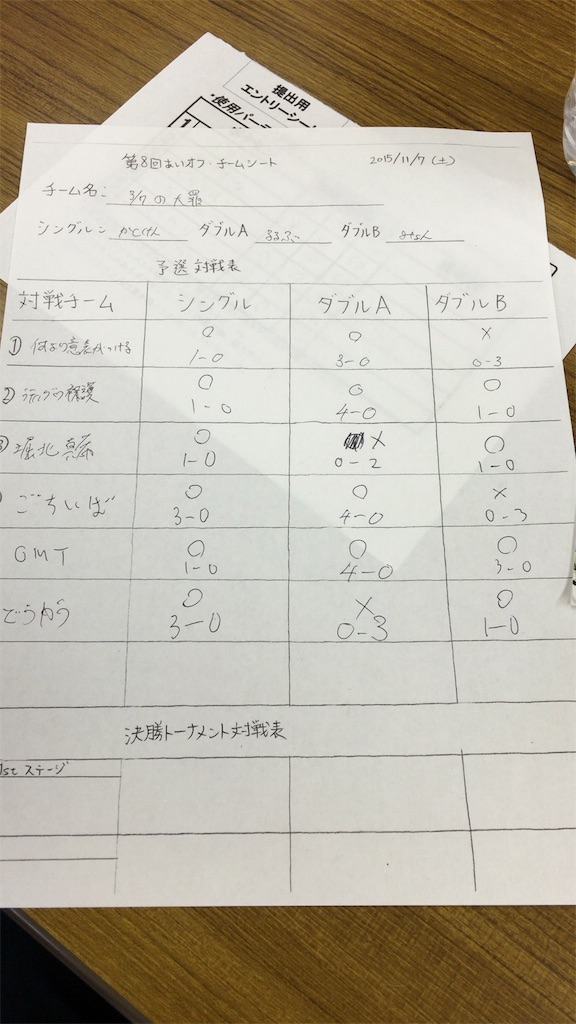 提出用
エントリーシー
・使用パー
第8回まいオフ・チームシート 2015/11/7 (土)
チーム名: 3/7の大罪
シングル: かしけん ダブルA るるぶ ダブルB みょん
予選対戦表
対戦チーム シングル ダブルA ダブルB
① ○ 1-0 ○ 3-0 × 0-3
② ○ 1-0 ○ 4-0 ○ 1-0
堀北真希 ○ 1-0 × 0-2 ○ 1-0
ごちいば ○ 3-0 ○ 4-0 × 0-3
OMT ○ 1-0 ○ 4-0 ○ 3-0
どうゆう ○ 3-0 × 0-3 ○ 1-0
決勝トーナメント対戦表
1stステージ